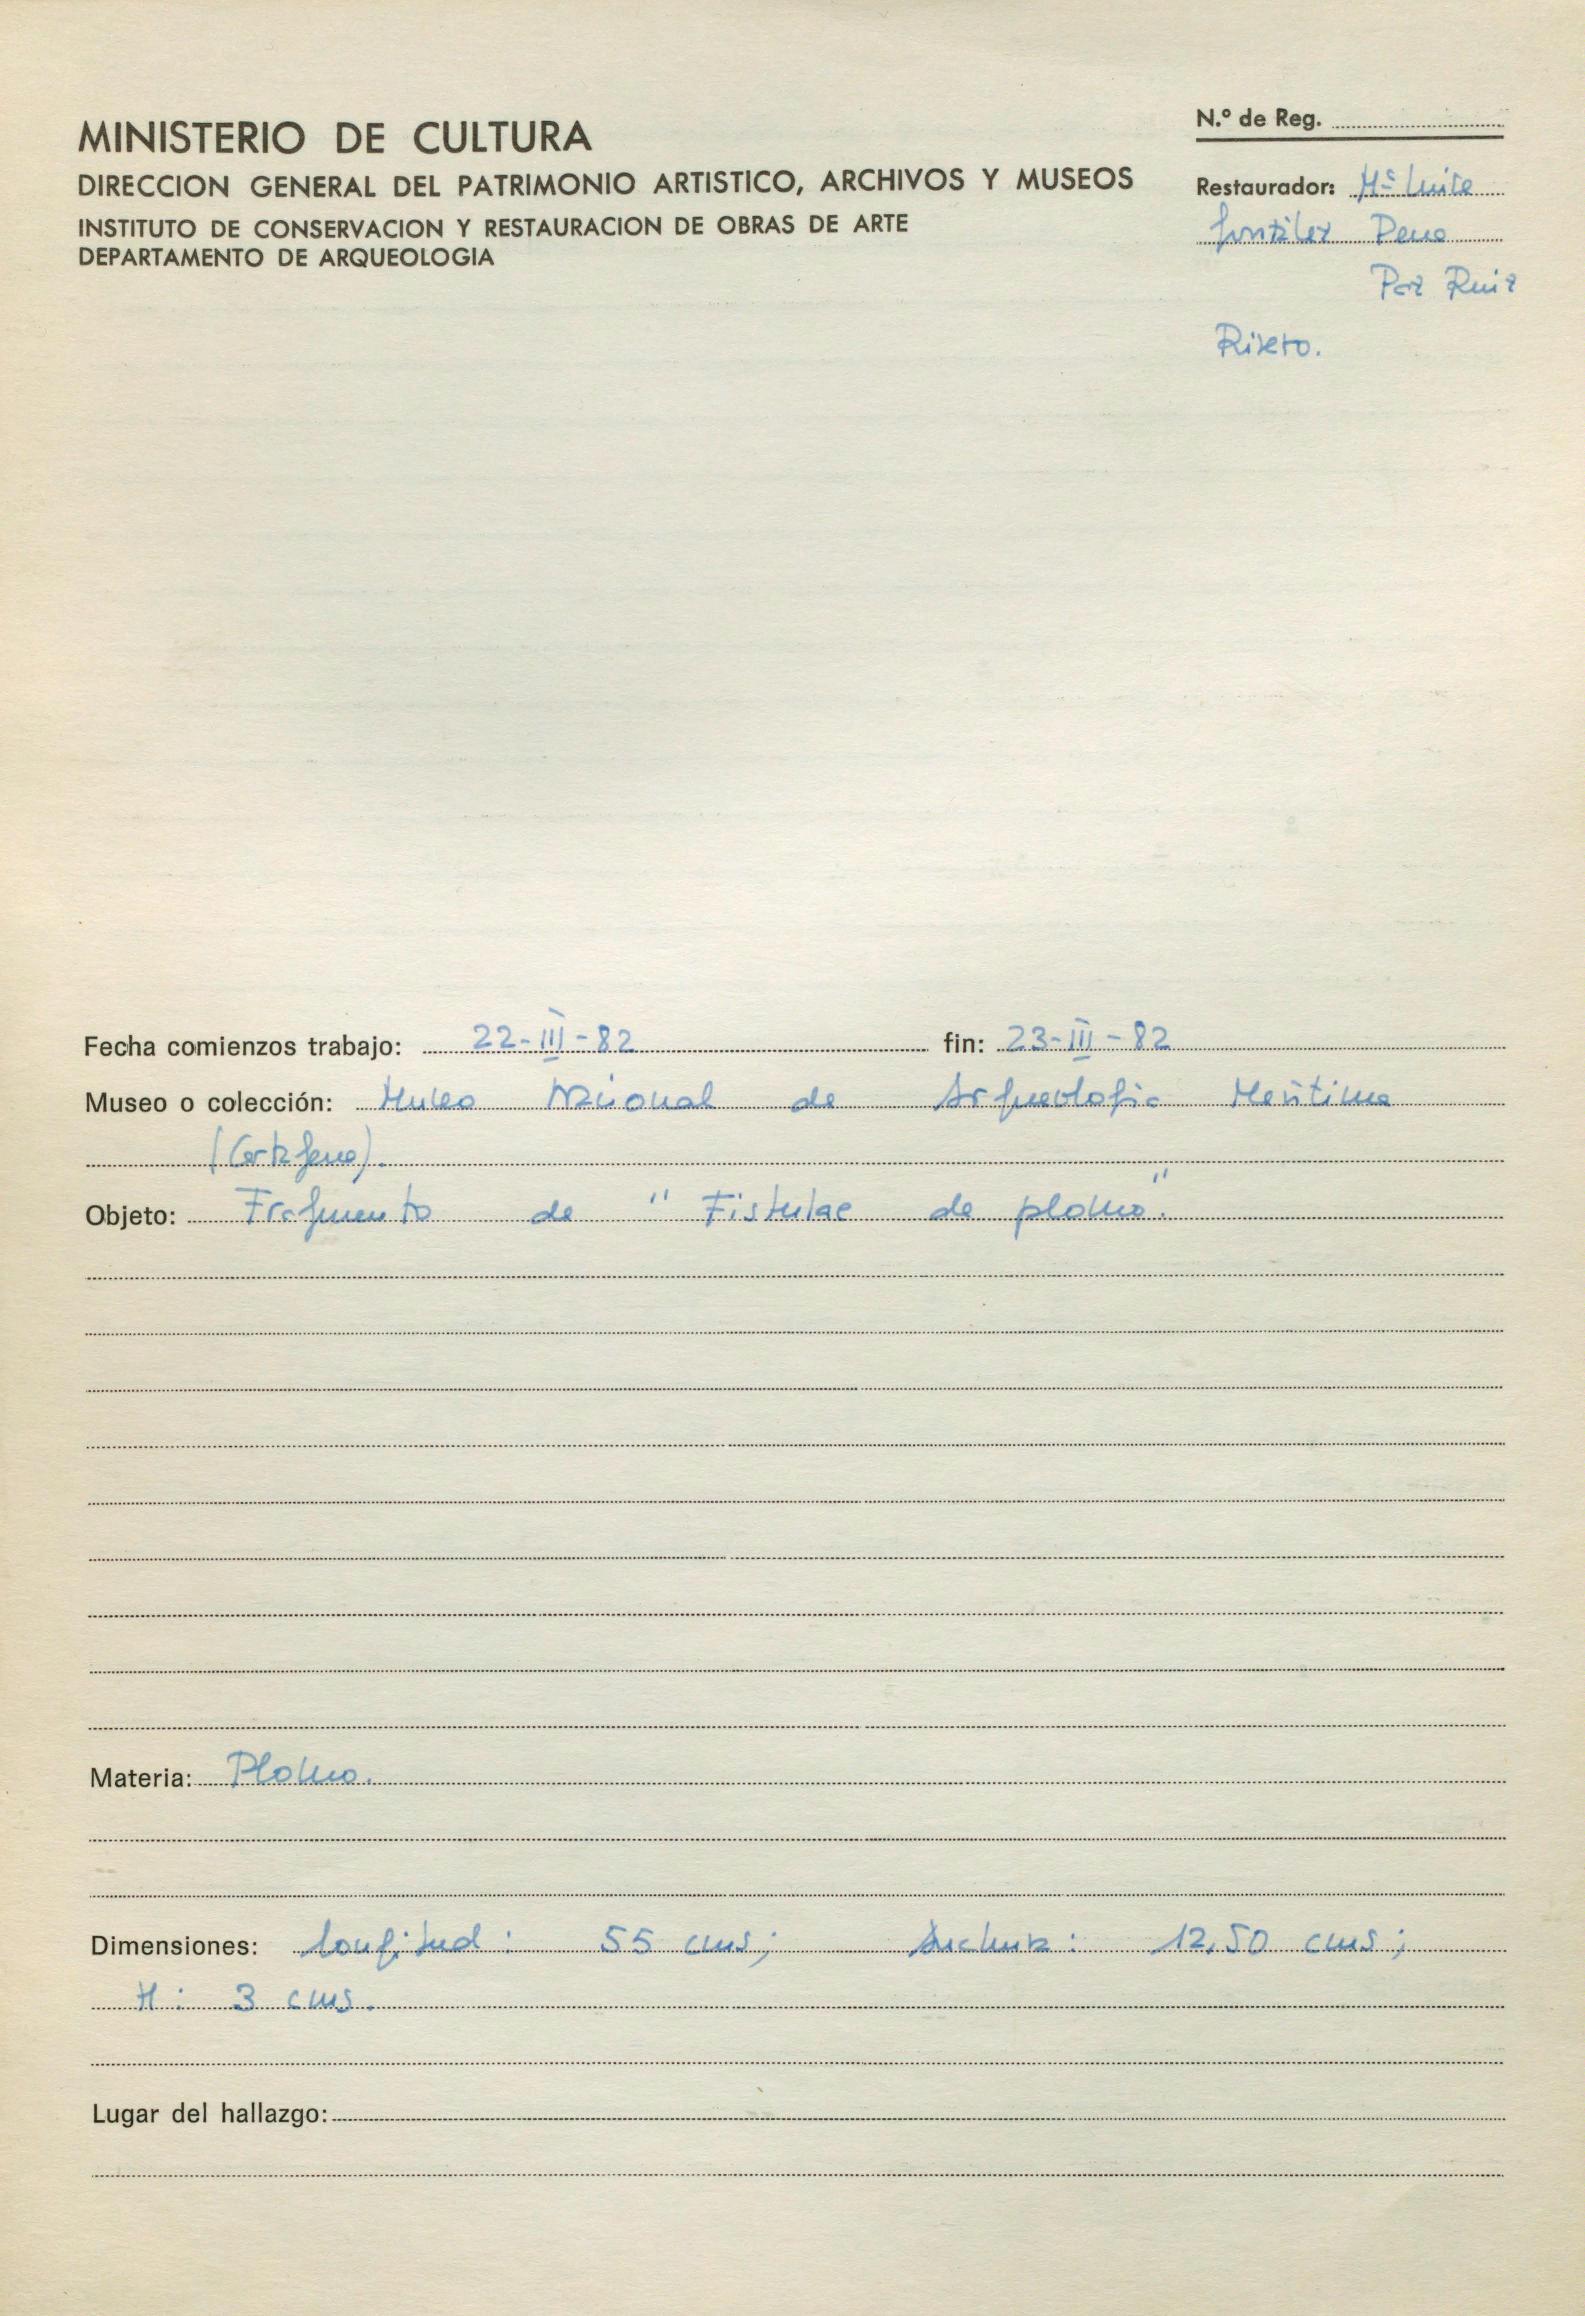 MINISTERIO DE CULTURA
DIRECCION GENERAL DEL PATRIMONIO ARTISTICO, ARCHIVOS Y MUSEOS
INSTITUTO DE CONSERVACION Y RESTAURACION DE OBRAS DE ARTE
DEPARTAMENTO DE ARQUEOLOGIA
N.º de Reg.
Restaurador: Mª Luisa
González Pena
Paz Ruiz
Fecha comienzos trabajo: 22-III-82 fin: 23-III-82
Museo o colección: Museo Nacional de Arqueologia Marítima
(Cartagena).
Objeto: Fragmento de "Fistulae de plomo".
Materia: Plomo.
Dimensiones: longitud: 55 cms; Anchura: 12,50 cms;
H: 3 cms.
Lugar del hallazgo: